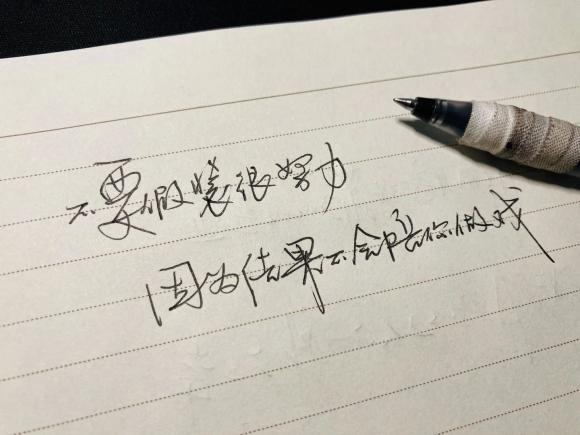 不要假装很努力
因为结果不会陪你做戏